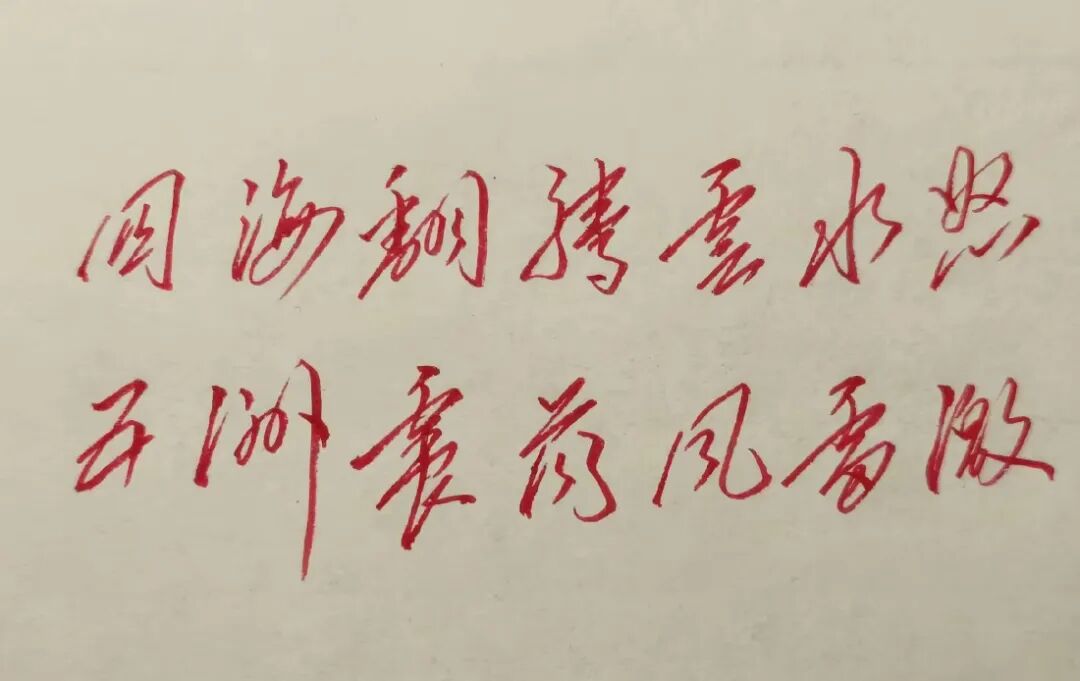 四海翻腾雲水怒
五洲震荡风雷激